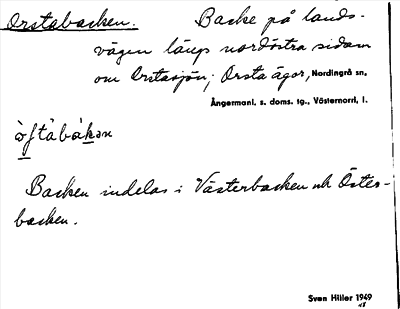 Orstabacken. Backe på lands-
vägen längs nordöstra sidan
om Orstasjön; Orsta ägor, Nordingrå sn,
Ångermanl. s. doms. tg., Västernorrl. l.
Backen indelas i Västerbacken och Öster-
backen.
Sven Hiller 1949